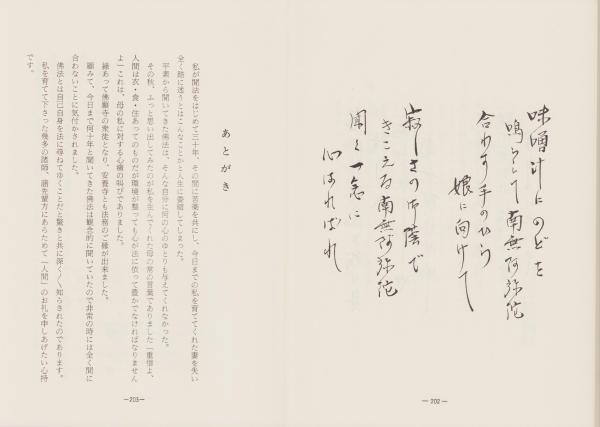 味噌汁にのどを
鳴らして南無阿弥陀
合わす手のひら
娘に向けて
寂しさの御蔭で
きこえる南無阿弥陀
聞く一念に
心はればれ
—202—
あとがき
私が聞法をはじめて三十年、その間に苦楽を共にし、今日までの私を育ててくれた妻を失い
全く路に迷うとはこんなことかと人生に萎縮してしまった。
平素から聞いてきた佛法は、そんな自分に何の心のゆとりも与えてくれなかった。
その秋、ふっと思い出してみたのが私を生んでくれた母の常の言葉でありました「重信よ、
人間は衣・食・住あってのものだが環境が整っても心が法に依って豊かでなければなりません
よ」これは、母の私に対する心痛の叫びでありました。
縁あって佛願寺の衆徒となり、安養寺とも法務のご縁が出来ました。
顧みて、今日まで何十年と聞いてきた佛法は観念的に聞いていたので非常の時には全く間に
合わないことに気付かされました。
佛法とは自己自身を法に尋ねてゆくことだと驚きと共に深く〳〵知らされたのであります。
私を育てて下さった幾多の諸師、諸先輩方にあらためて「人間」のお礼を申しあげたい心持
です。
—203—